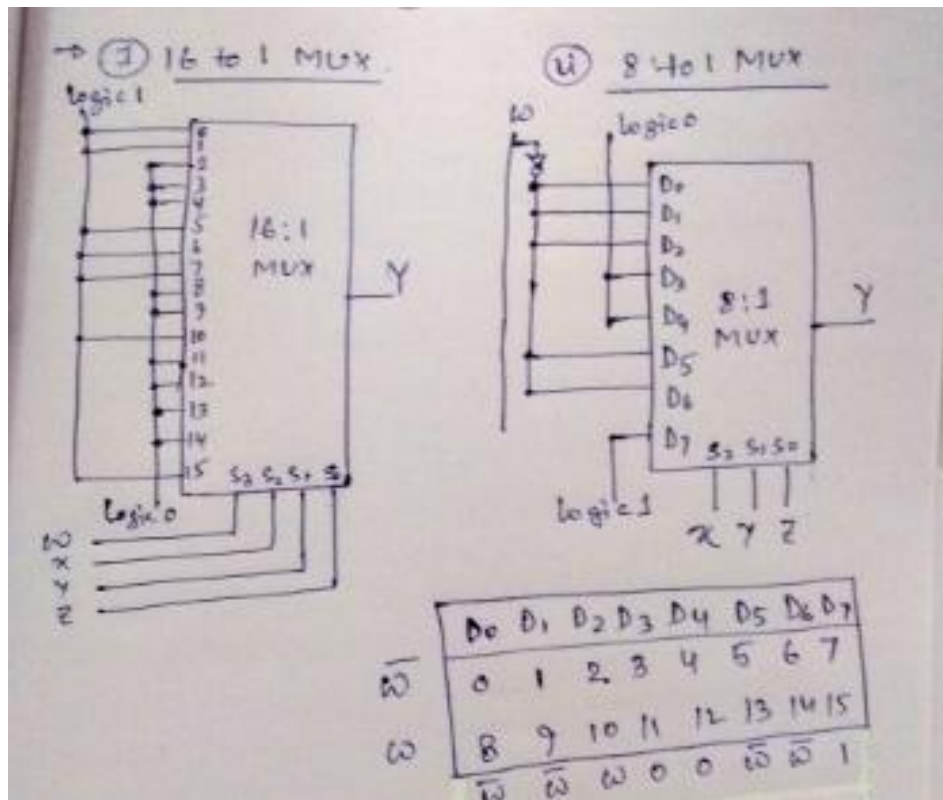 → ① 16 to 1 MUX
logic 1
0
1
2
3
4
5
6
7
8
9
10
11
12
13
14
15
16:1
MUX
Y
S3 S2 S1
logic 0
ω
X
Y
Z
ii 8 to 1 MUX
ω
logic 0
D0
D1
D2
D3
D4
D5
D6
D7
8:1
MUX
Y
S2 S1 S0
logic 1
x Y Z
D0 D1 D2 D3 D4 D5 D6 D7
ω̅ 0 1 2 3 4 5 6 7
ω 8 9 10 11 12 13 14 15
ω̅ ω̅ ω 0 0 ω̅ ω̅ 1